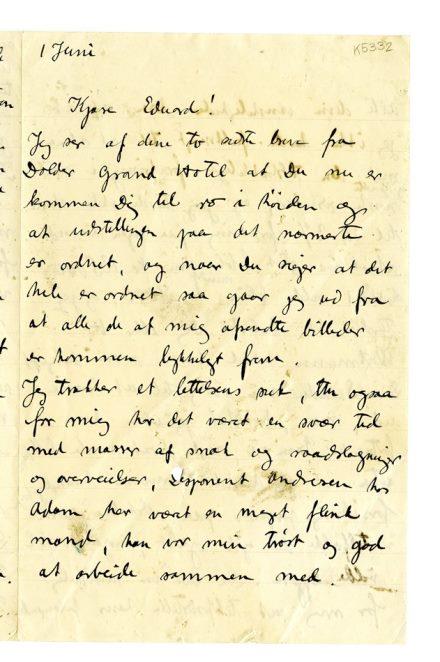 1 Juni
K5332
Kjære Edvard!
Jeg ser af dine to sidste breve fra
Dolder Grand Hotel at Du nu er
kommen Dig til ro i høiden og
at udstillingen paa det nærmeste
er ordnet, og naar Du siger at det
hele er ordnet saa gaar jeg ud fra
at alle de af mig afsendte billeder
er kommen lykkeligt frem.
Jeg trækker et lettelsens suk, thi ogsaa
for mig har det været en svær tid
med masser af snak og raadslagninger
og overveielser, Disponent Andresen hos
Adam har været en meget flink
mand, han var min trøst og god
at arbeide sammen med.